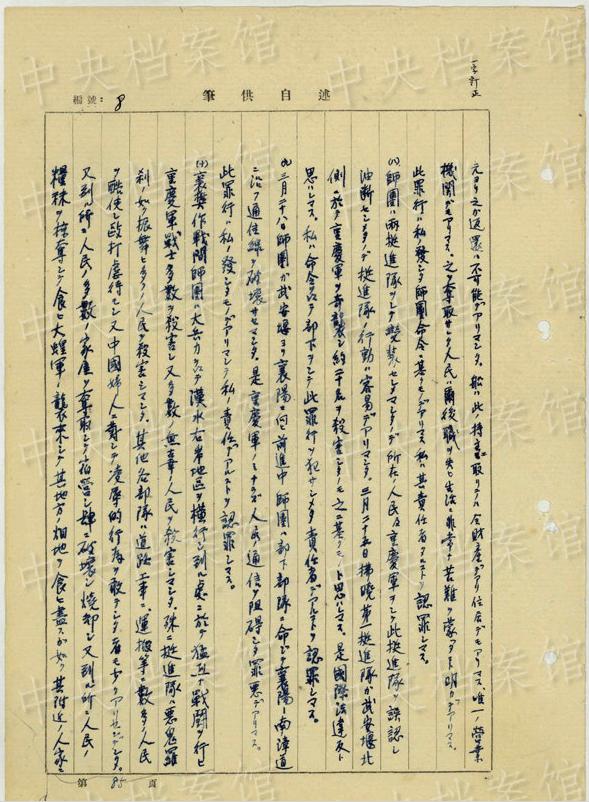 中央档案馆
筆供自述
編號：8
一字訂正
元ヨリ之が返還ハ不可能デアリマシタ。船ハ此ノ持主ニ取リテハ全財産デアリ住居デモアリマス、唯一ノ営業
機関デモアリマス。之ヲ奪取サレタ人民ハ爾後職ヲ失ヒ生活ニ非常ナ苦難ヲ蒙ツタコト明カデアリマス。
此罪行ハ私ノ発シタ師團命令ニ基クモノデアリマス 私ハ其責任者タルコトヲ認罪シマス。
(八)師團ハ両挺進隊ヲシテ変装セシメマシタノデ所在ノ人民及重慶軍ヲシテ此挺進隊ヲ誤認シ
油断セシメタノデ挺進隊ノ行動ハ容易デアリマシタ。三月二十五日拂曉第一挺進隊ガ武安堰北
側ニ於テ重慶軍ヲ奇襲シ約二千名ヲ殺害シタノモ之ニ基クモノト思ハレマス。是國際法違反ト
思ハレマス。私ハ命令ヲ以テ部下ヲシテ此罪行ヲ犯サシメタ責任者デアルコトヲ認罪シマス。
(九)三月二十八日師團ガ武安堰ヨリ襄陽ニ向ヒ前進中師團ハ部下部隊ニ命ジテ襄陽―南漳道
ニ沿フ通信線ヲ破壊サセマシタ。是重慶軍ノミナラズ人民ノ通信ヲ阻碍シタ罪悪デアリマス。
此罪行ハ私ノ発シタモノデアリマシテ私ノ責任デアルコトヲ認罪シマス。
(十)襄樊作戦間師團ハ大兵力ヲ以テ漢水右岸地区ヲ横行シ到ル處ニ於テ猛烈ナ戦闘ヲ行ヒ
重慶軍戦士多数ヲ殺害シ又多数ノ無辜ノ人民ヲ殺害シマシタ。殊ニ挺進隊ハ悪鬼羅
刹ノ如ク振舞ヒ多クノ人民ヲ殺害シマシタ。其他各部隊ハ道路工事ニ、運搬等ニ数多ノ人民
ヲ酷使シ殴打虐待セシ又中國婦人ニ対シテ凌辱的行為ヲ敢テシタ者モ少クアリマセンデシタ。
又到ル所ニ人民ノ多数ノ家屋ヲ奪取シテ宿営シ肆ニ破壊シ焼却シ又到ル所ニ人民ノ
糧秣ヲ掠奪シテ食ヒ大蝗軍ノ襲来シテ其地方ノ畑地ヲ食ヒ盡スガ如ク其附近ノ人家ニ
第85頁